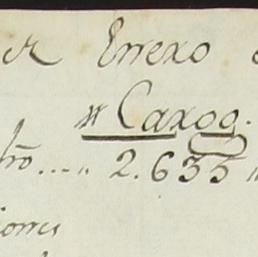 er Enexo
# Caxog.
tro.... " 2.635 "
iones